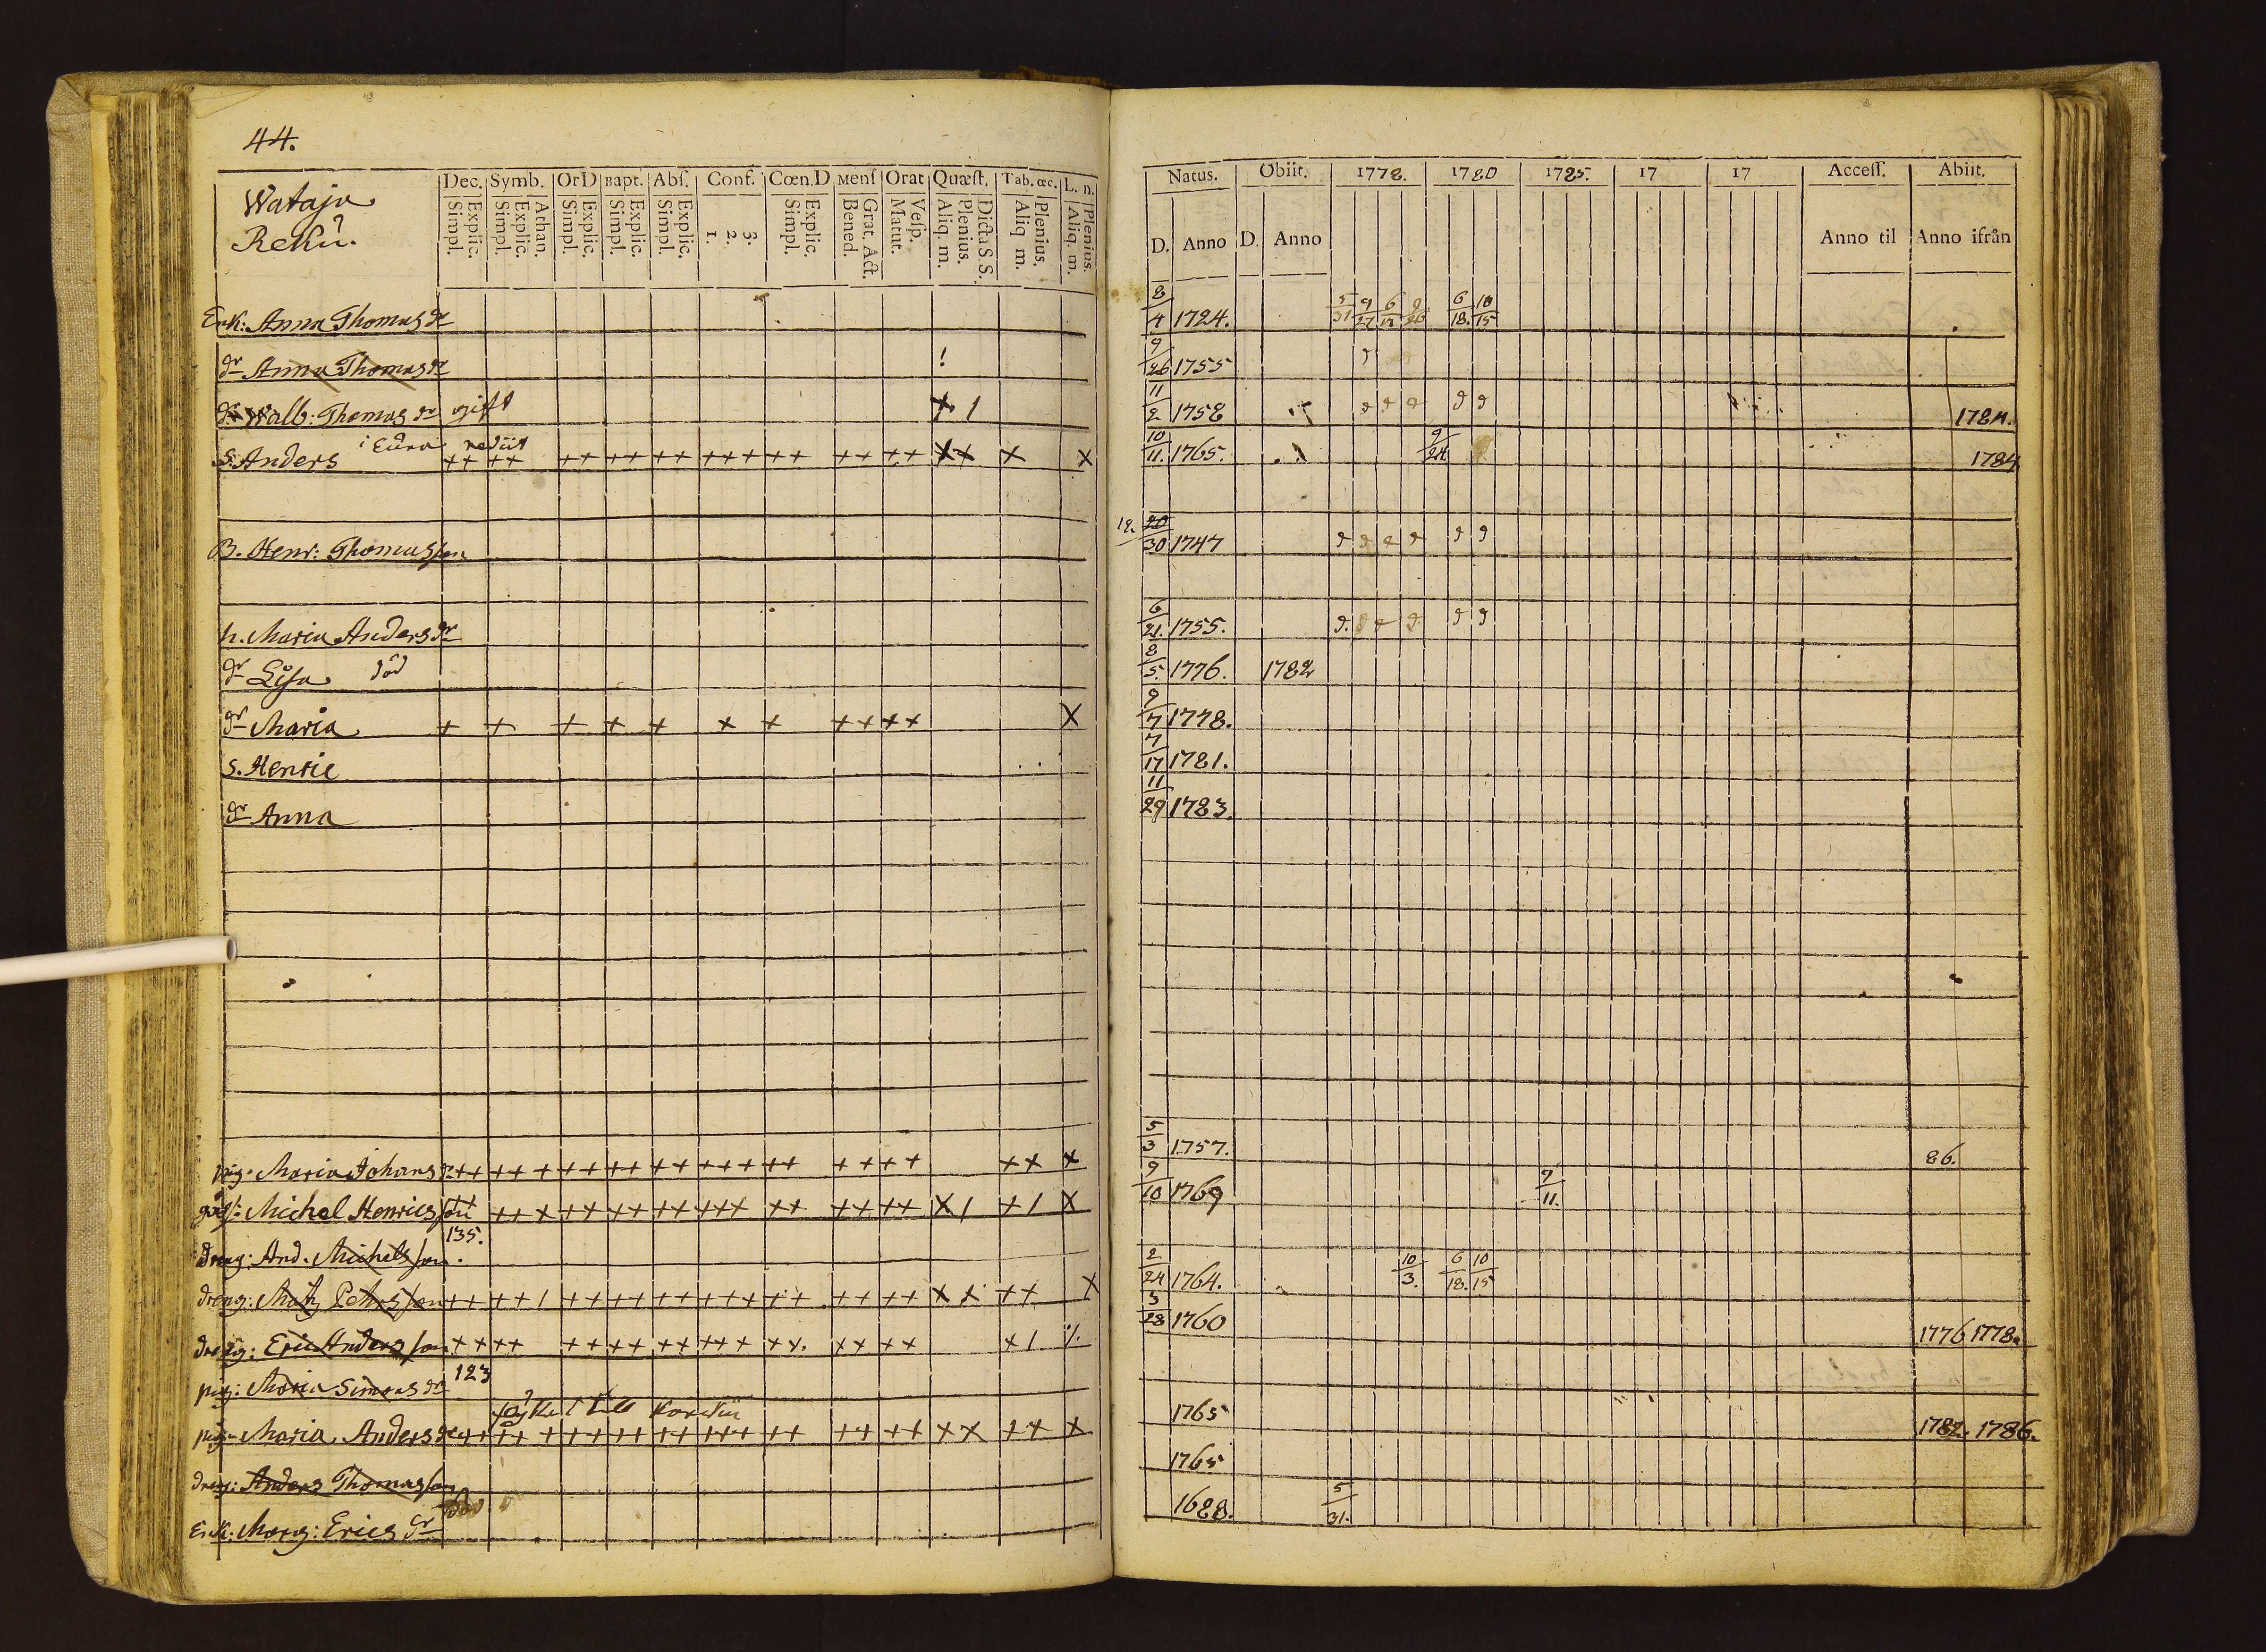 44.
Wataja
Rekû.
Dec. Symb. Or D Bapt. Abs. Conf. Cœn.D Mens Orat Quæst. Tab. œc. L. n.
Simpl. Explic. Simpl. Explic. Athan. Simpl. Explic. Simpl. Explic. Simpl. Explic. 1. 2. 3. Simpl. Explic. Bened. Grat. Act. Matut. Vesp. Aliq. m. Plenius. Dicta S. S. Aliq m. Plenius. Aliq. m. Plenius.
Natus. Obiit. 1778. 1780 1785. 17 17 Access. Abiit.
D. Anno D. Anno Anno til Anno ifrån
Enk: Anna Thomas dr 8/4 1724. 5/31 9/27 6/12 6/18. 10/15
dr Anna Thomas dr ! 9/26 1755
dr Walb: Thomas dr gift x 1 11/2 1758 1784.
i Eura rediit
S. Anders ++ ++ ++ ++ ++ +++ ++ ++ ++ ++ + x 10/11. 1765. 9/24. 1784
B. Henr: Thomasson 12. 20/30 1747
h. Maria Anders dr 6/21. 1755.
dr Lisa död 8/5. 1776. 1782
dr Maria + + + + + + + ++ ++ x 9/7 1778.
s. Henric 7/17 1781.
dr Anna 11/29 1783.
pig. Maria Johans dr ++ ++ + ++ ++ ++ +++ ++ ++ ++ ++ x 5/3 1757. 86.
Michel Henricsson ++ ++ + ++ ++ ++ +++ ++ ++ ++ x 1 + 1 x 9/10 1769 9/11.
135.
dreng: And. Michelsson.
dreng: Matz Pehrsson ++ ++ 1 ++ ++ ++ +++ ++ ++ ++ x x ++ x 2/24 1764. 10/3. 6/18. 10/15
dreng: Eric Andersson ++ ++ ++ ++ ++ +++ ++. ++ ++ + 1 5/28 1760 1776 1778.
pig: Maria Simons dr 123
pig. Maria Anders dr ++ ++ + ++ ++ ++ +++ ++ ++ ++ x x ++ x 1765 1782. 1786.
dreng: Anders Thomasson 1765
Enk: Marg: Erics dr 1688. 5/31.